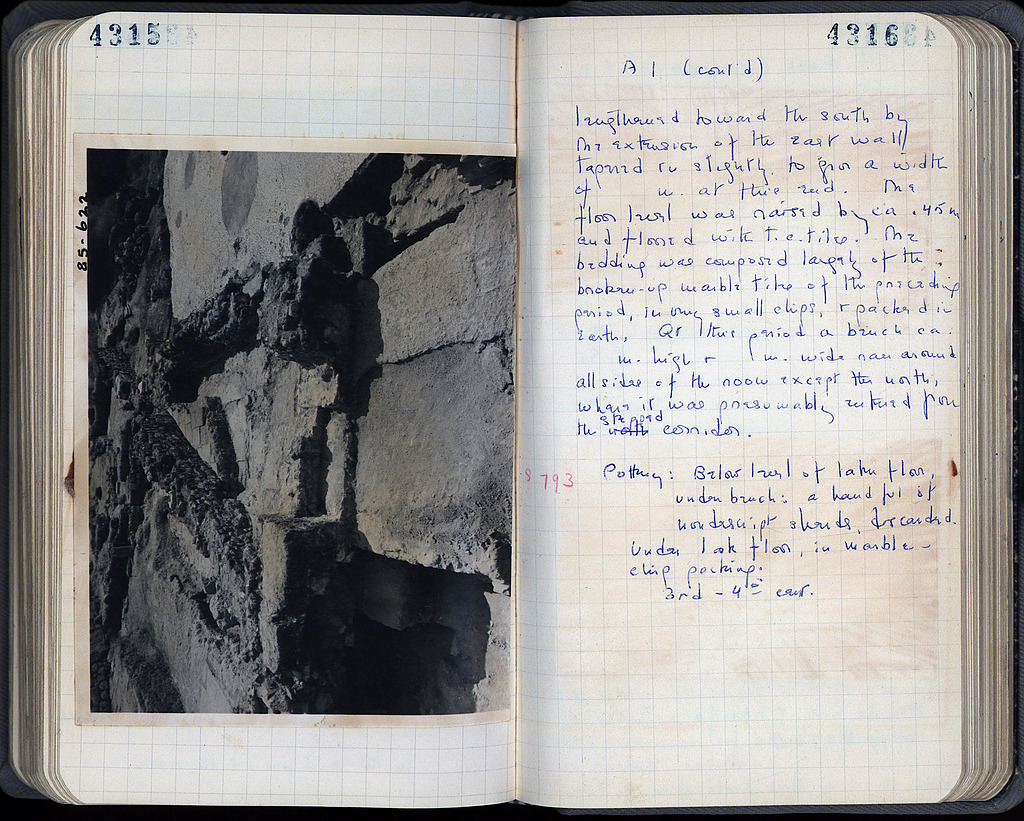 4315
85-622
4316
A 1 (cont'd)
lengthened toward the south by
the extension of the east wall,
tapered in slightly, to give a width
of m. at this end. The
floor level was raised by ca. .45 m
and floored with t.c. tiles. The
bedding was composed largely of the
broken-up marble tiles of the preceding
period, in very small chips, + packed in
earth. At this period a bench ca.
m. high + m. wide ran around
all sides of the room except the north,
where it was presumably entered from
stepped
the corridor.
S 793
Pottery: Below level of later floor,
under bench: a handful of
nondescript sherds, discarded.
Under floor, in marble-
chip packing.
3rd - 4th cent.